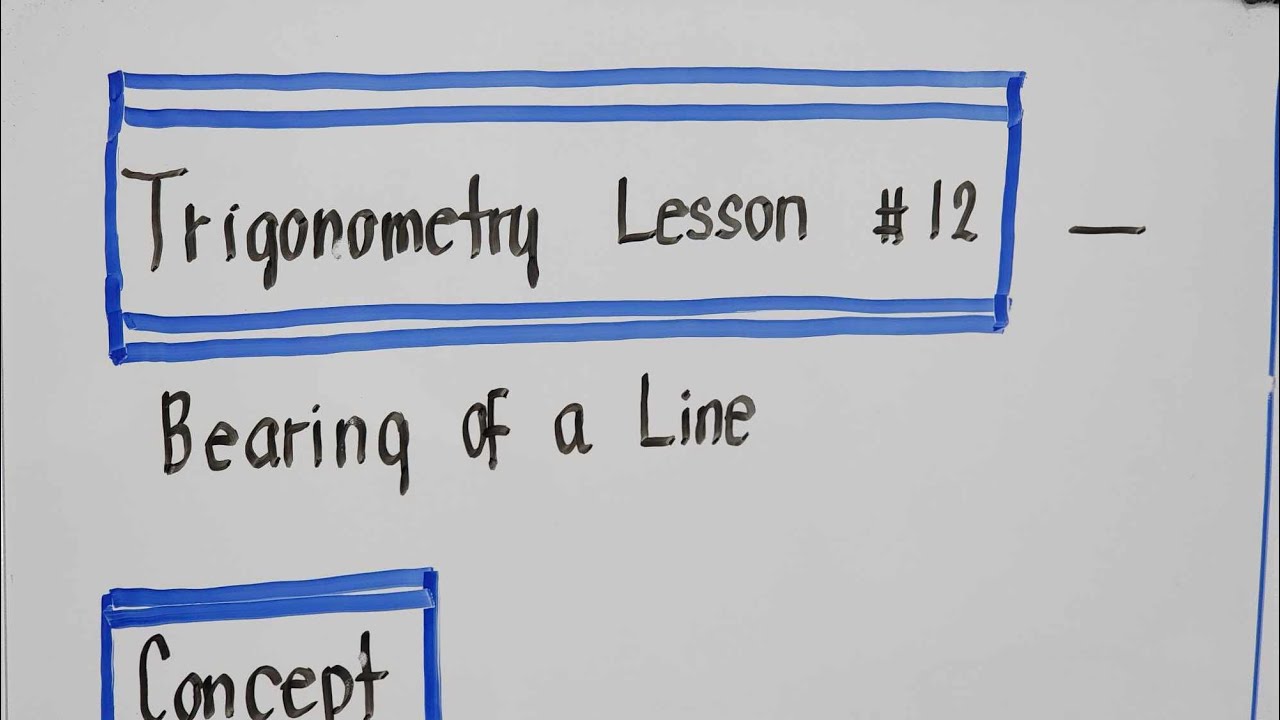 Trigonometry Lesson #12 —
Bearing of a Line
Concept